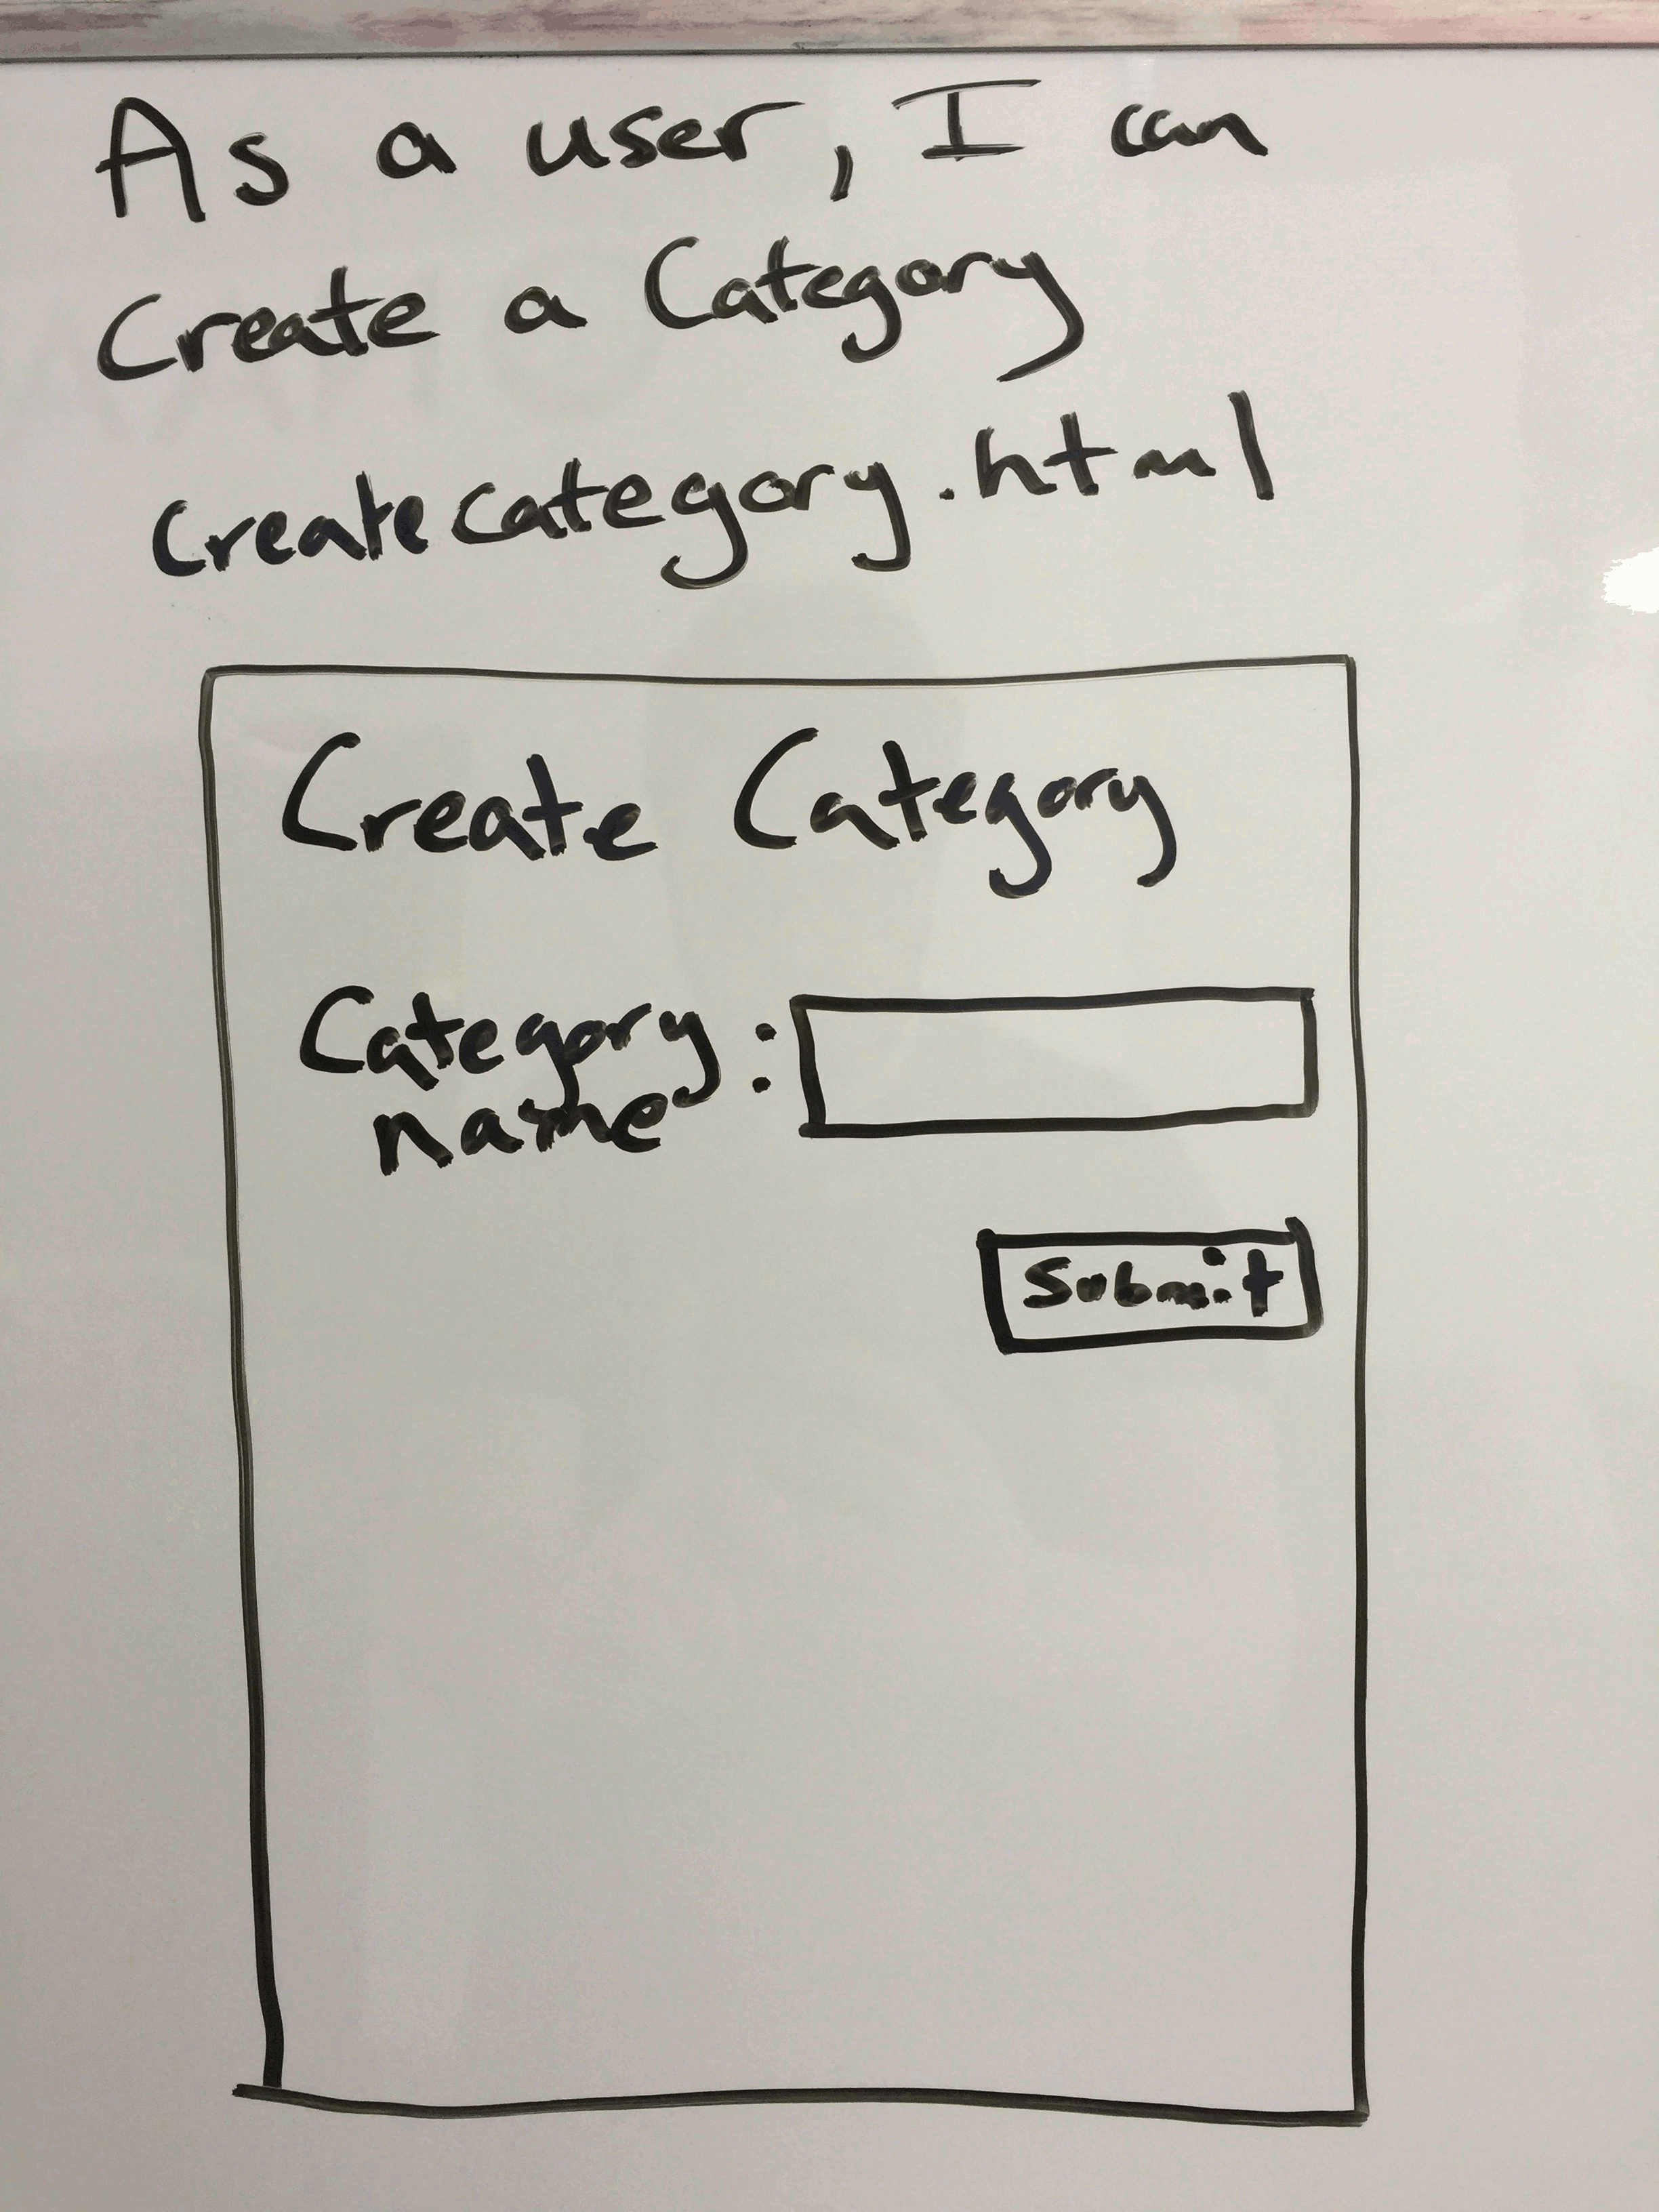 As a user, I can
Create a Category
createcategory.html
Create Category
Category :
name
Submit